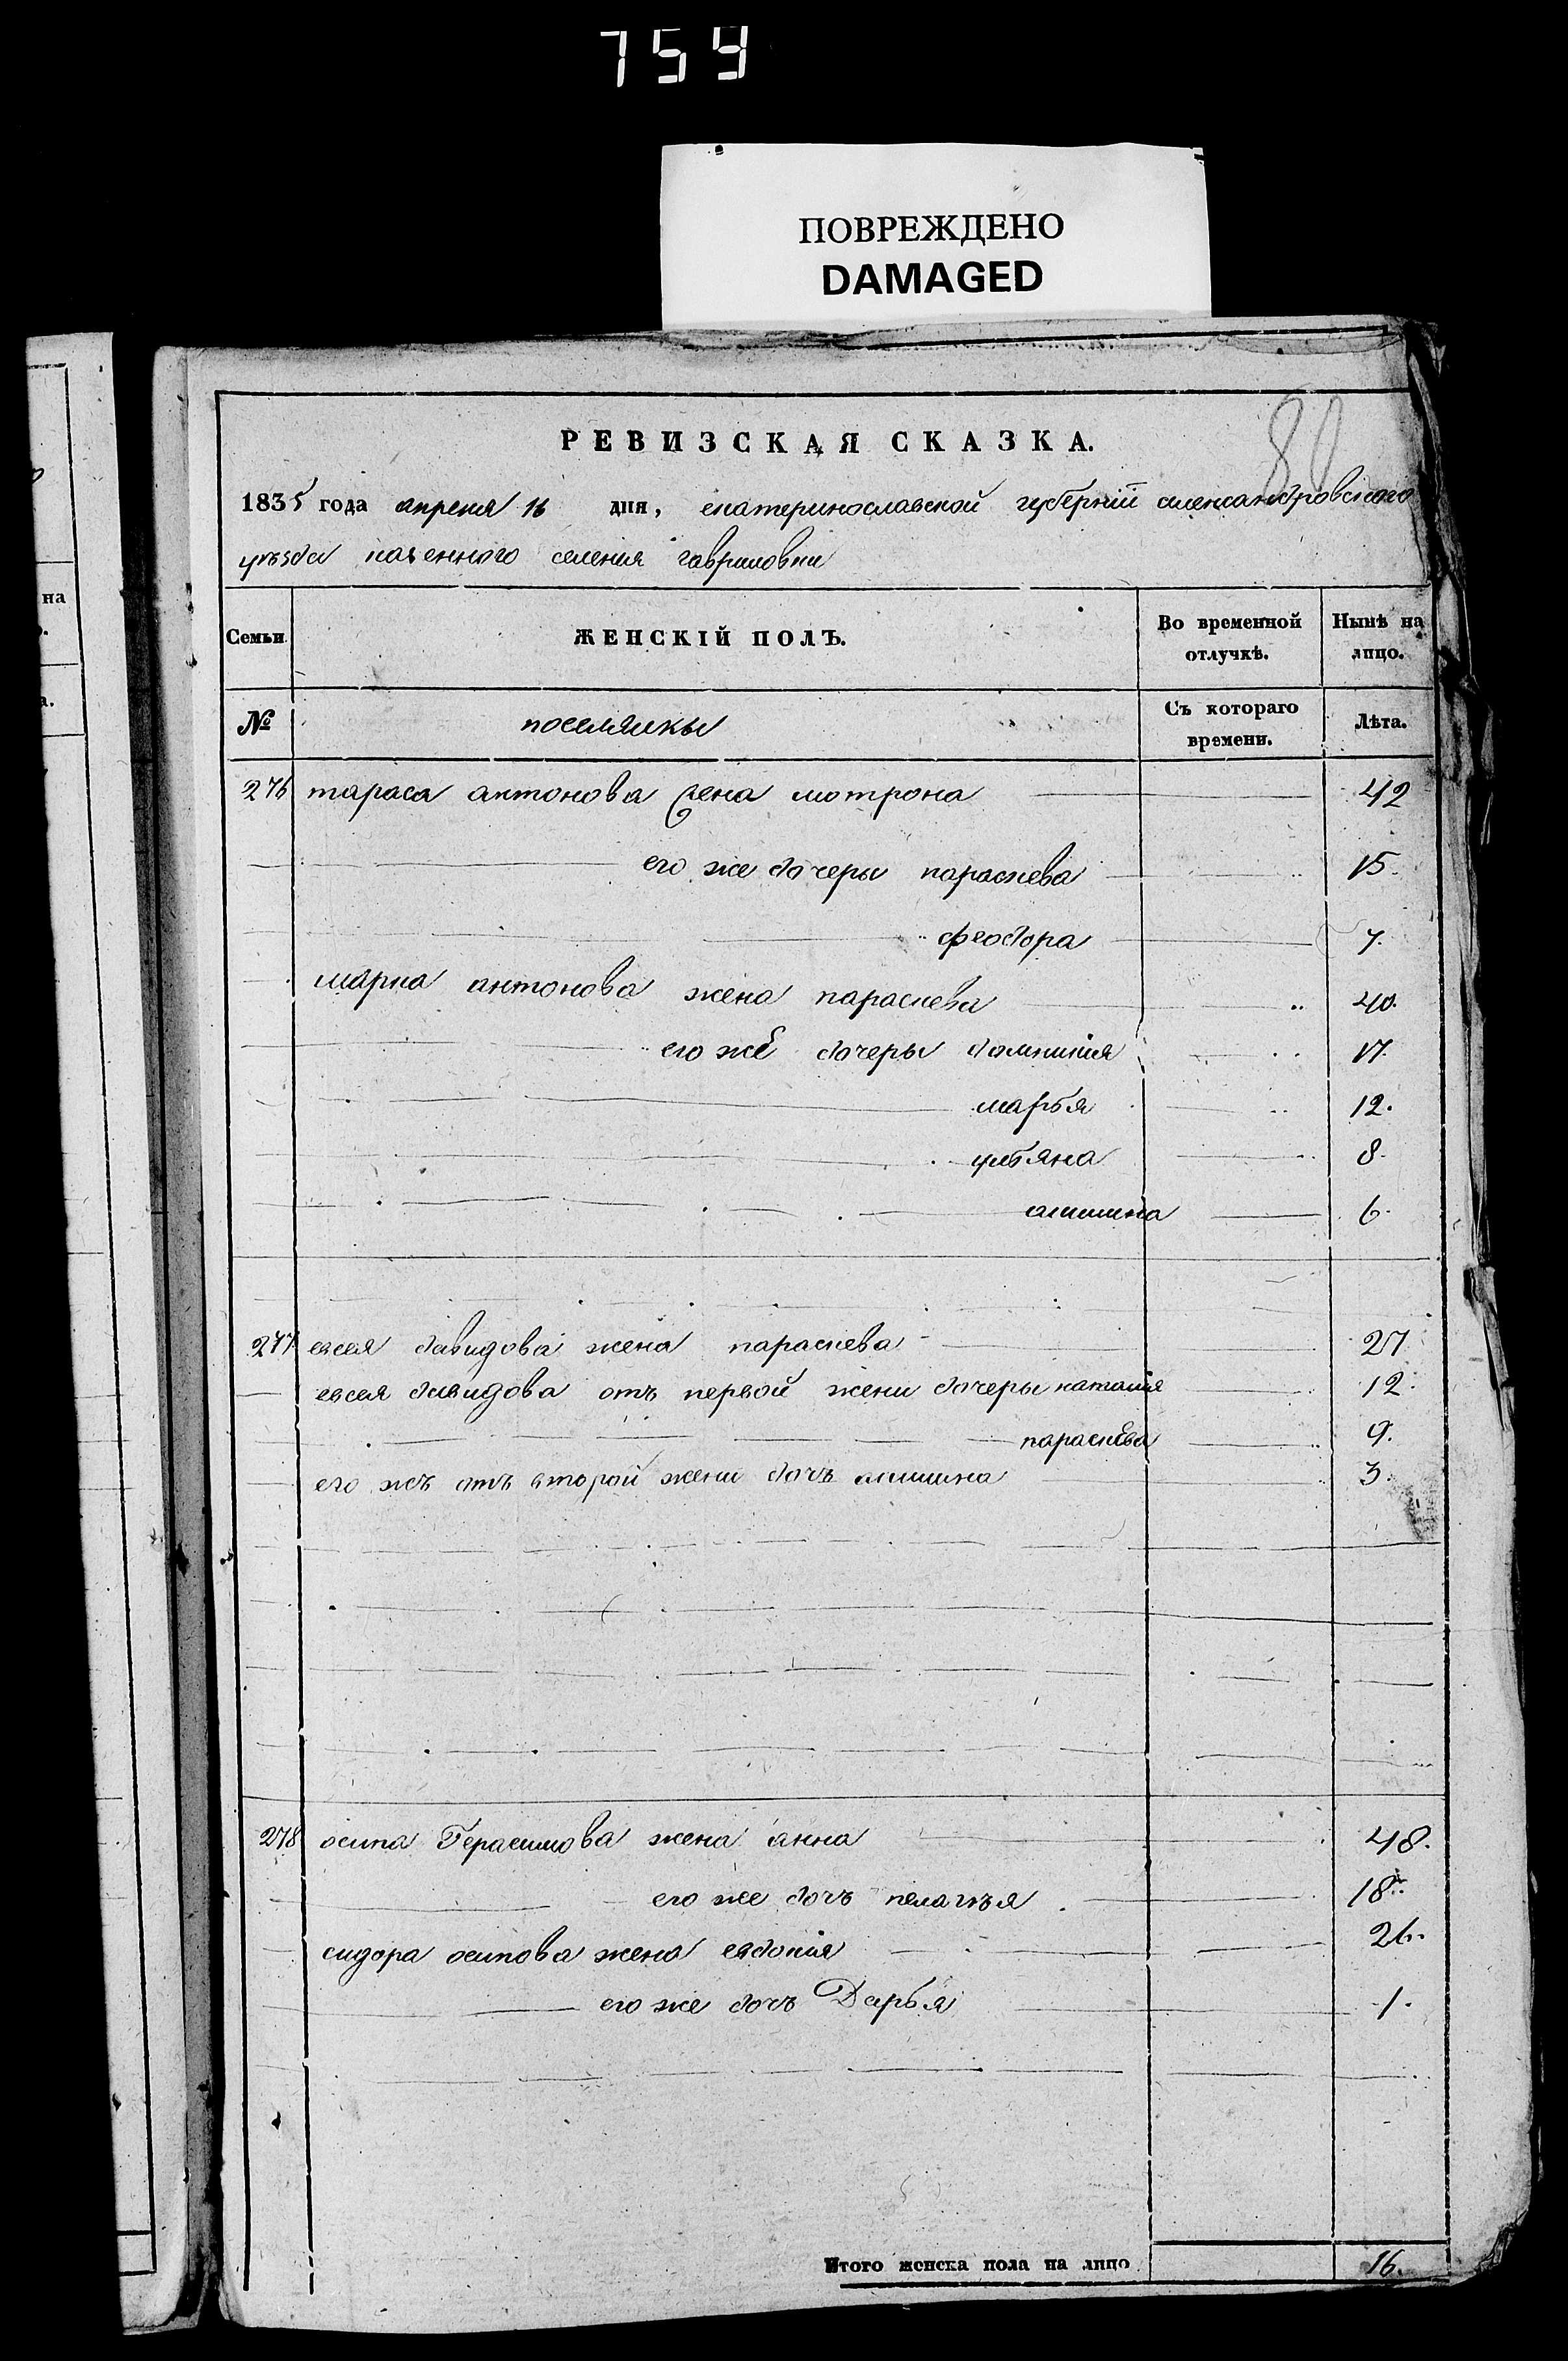 759
ПОВРЕЖДЕНО
DAMAGED
80
РЕВИЗСКАЯ СКАЗКА.
1835 года апреля 16 дня, екатеринославской губернïи александровского
уѣзда казенного селения гавриловки
Семьи ЖЕНСКІЙ ПОЛЪ. Во временной отлучкѣ. Нынѣ на лицо.
№ поселянки Съ котораго времени. Лѣта.
276 тараса антонова жена мотрона 42
его же дочеры параскева 15.
феодора 7.
марка антонова жена параскева 40.
его же дочеры домникия 17.
марья 12.
ульяна 8.
акилина 6.
277 евсея давидова жена параскева 27
евсея давидова отъ первой жени дочеры наталия 12.
параскева 9.
его жъ отъ второй жени дочъ акилина 3.
278 осипа Герасимова жена анна 48.
его же дочъ пелагъя 18.
сидора осипова жена евдокия 26.
его же дочъ Дарья 1.
Итого женска пола на лицо 16.
на